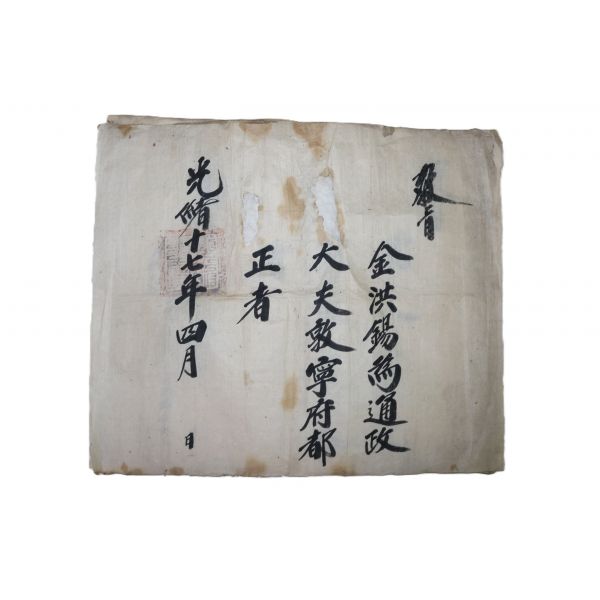 敎旨
金洪錫爲通政
大夫敦寧府都
正者
光緖十七年四月 日